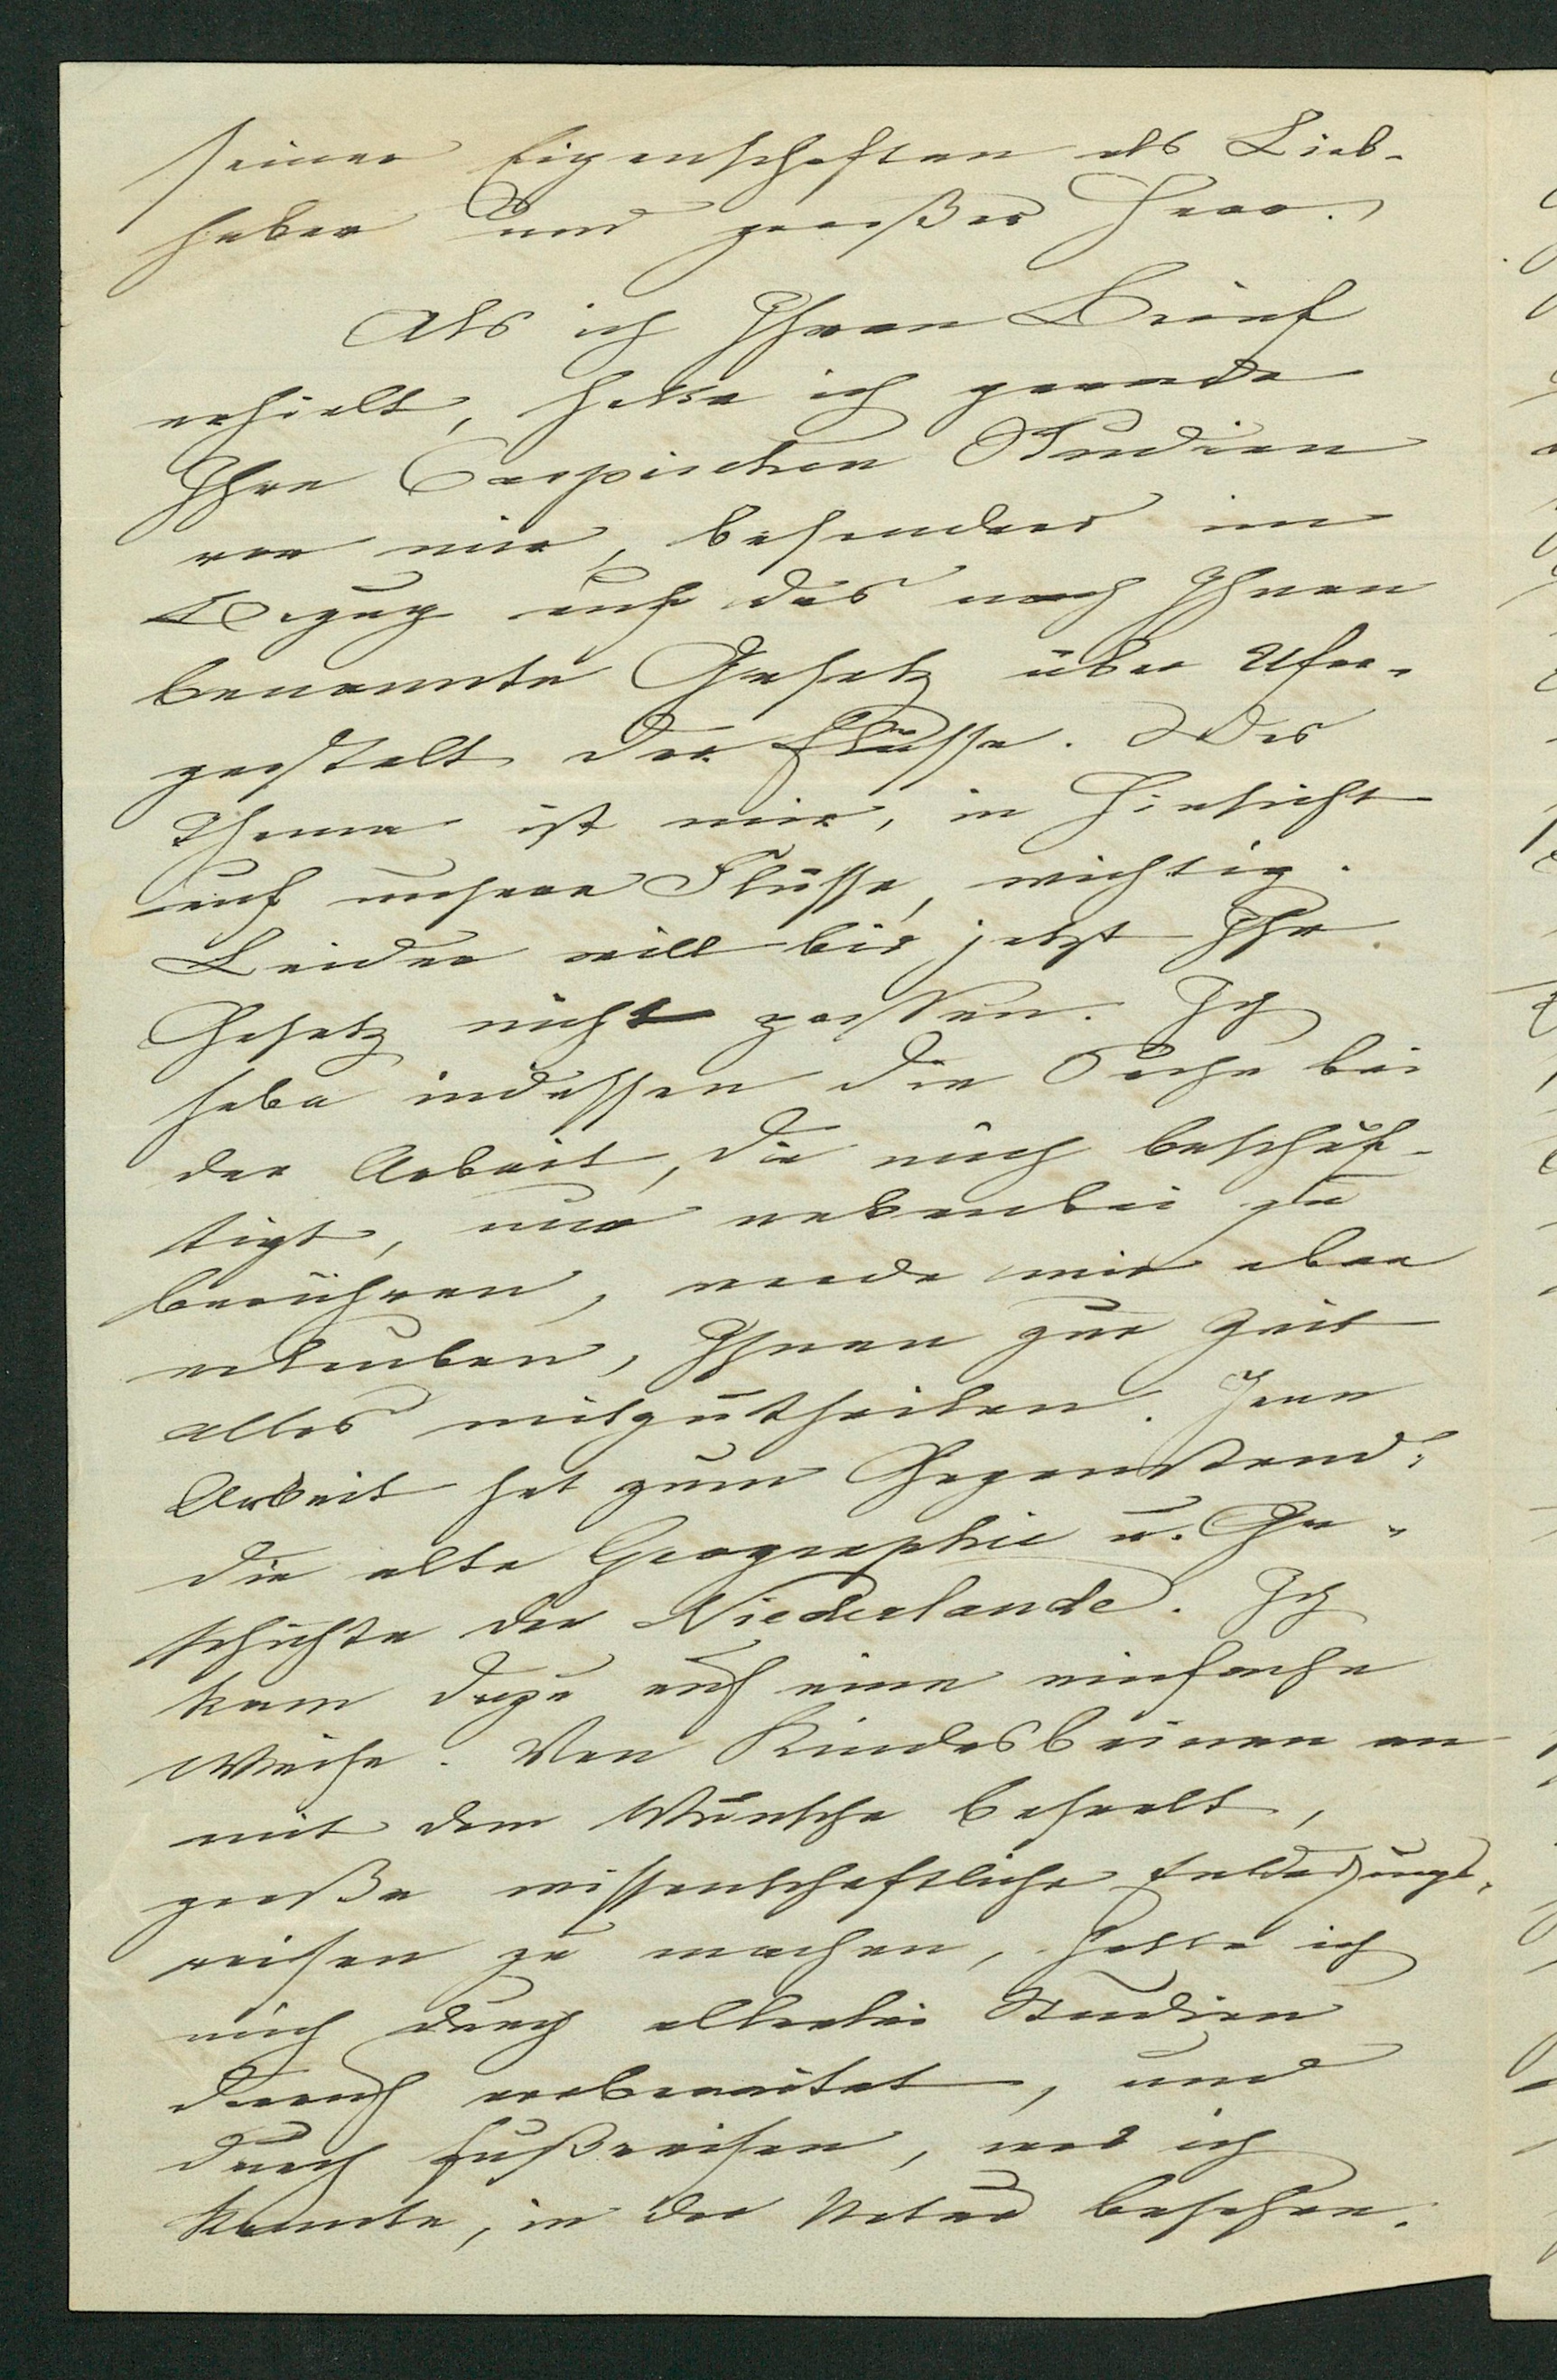 seiner Eigenschaften als Lieb-
haber und großer Herr.
Als ich Ihren Brief
erhielt, hatte ich gerade
Ihre Caspischen Studien
vor mir, besonders in
Bezug auf das nach Ihnen
benannte Gesetz über Ufer-
gestalt der Flüsse. Das
Thema ist mir, in Hinsicht
auf unsere Flüsse, wichtig.
Leider will bis jetzt Ihr
Gesetz nicht passen. Ich
habe indessen die Sache bei
der Arbeit, die mich beschäf-
tigt, nur nebenbei zu
berühren, werde mir aber
erlauben, Ihnen zur Zeit
alles mitzutheilen. Jene
Arbeit hat zum Gegenstand:
die alte Geographie u. Ge-
schichte der Niederlande. Ich
kam dazu auf eine einfache
Weise. Von Kindesbeinen an
mit dem Wunsche beseelt,
große wissenschaftliche Entdeckungs-
reisen zu machen, hatte ich
mich durch allerlei Studien
darauf vorbereitet, und
durch Fußreisen, was ich
konnte, in der Natur besehen.